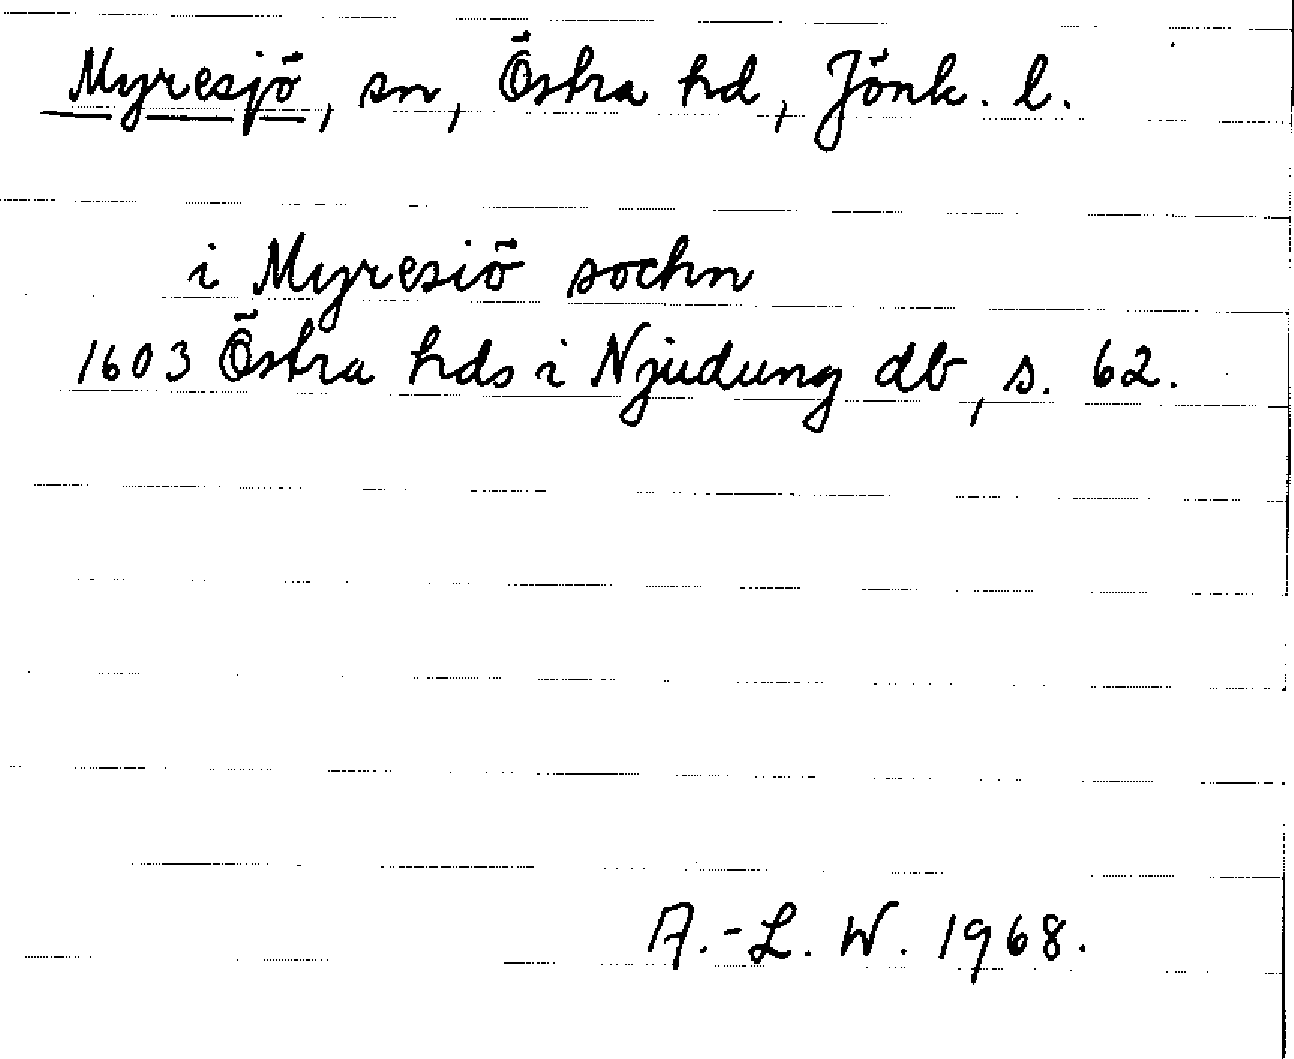 Myresjö, sn, Östra hd, Jönk. l.
i Myresiö sochn
1603 Östra hds i Njudung db, s. 62.
A.-L. W. 1968.